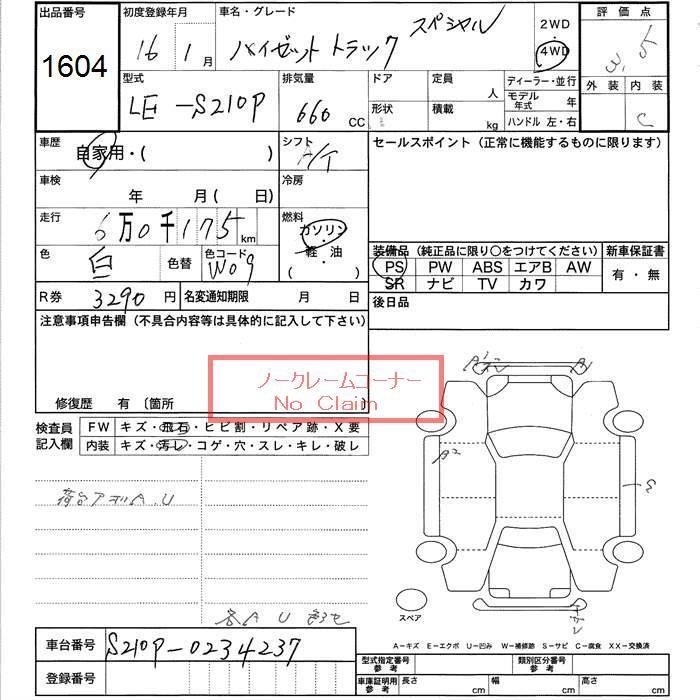 出品番号
1604
初度登録年月
16年 1月
車名・グレード
ハイゼットトラック スペシャル
2WD
・
4WD
評価点
3.5
外装 内装
C
型式
LE-S210P
排気量
660 CC
ドア
形状
定員 人
積載 kg
ディーラー・並行
モデル年式 年
ハンドル 左・右
車歴
自家用・( )
シフト
A/T
セールスポイント(正常に機能するものに限ります)
車検
年 月( 日)
冷房
走行
6万0千175km
燃料
ガソリン
・
軽・油
( )
色
白
色替
色コード
W09
装備品(純正品に限り○をつけてください)
新車保証書
PS PW ABS エアB AW
SR ナビ TV カワ
有・無
R券 3290円
名変通知期限 月 日
後日品
注意事項申告欄(不具合内容等は具体的に記入して下さい)
ノークレームコーナー
No Claim
修復歴 有〔箇所 〕
検査員記入欄
FW キズ・飛石・ヒビ割・リペア跡・X要
内装 キズ・汚レ・コゲ・穴・スレ・キレ・破レ
A1
A
A2
荷台アオリA.U
各AU
スペア
A-キズ E-エクボ U-凹み W-補修跡 S-サビ C-腐食 XX-交換済
車台番号
S210P-0234237
登録番号
型式指定番号 参考
類別区分番号 参考
車庫証明用 参考
長さ cm
幅 cm
高さ cm